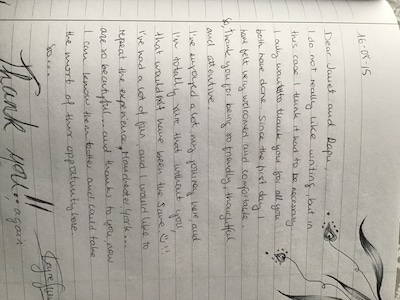 16·08·15
Dear Janet and Papu,
I do not really like writing, but in
this case I think it had to be necessary.
I only want to thank you for all you
both have done. Since the first day I
had felt very welcomed and comfortable.
So, thank you for being so friendly, thoughtful
and attentive.
I've enjoyed a lot my journey here and
I'm totally sure that without you,
that wouldn't have been the same!!!
I've had a lot of fun, and I would like to
repeat the experience, Manchester, York...
are so beautiful, and thanks to you, now
I can know them better and could take
the most of this opportunity here.
So...
Thank you!! again